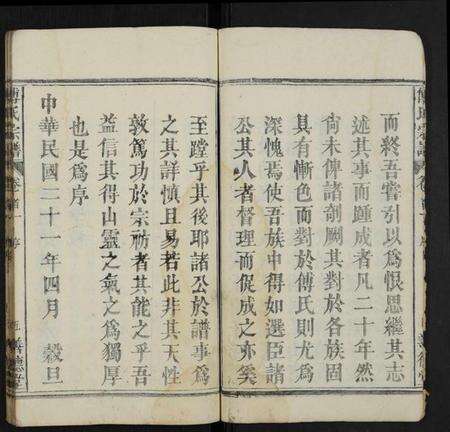 而終吾嘗引以為恨思繼其志
述其事而踵成者凡二十年然
尚未俾諸剞劂其對於各族固
具有慚色而對於傅氏則尤為
深愧焉使吾族中得如選臣諸
公其人者督理而促成之亦奚
至蹚乎其後耶諸公於譜事為
之其詳慎且易若此非其天性
敦篤功於宗祊者其能之乎吾
益信其得山靈之氣之為獨厚
也是為序
中華民國二十一年四月 穀旦
傅氏宗譜 卷首一 序
善德堂